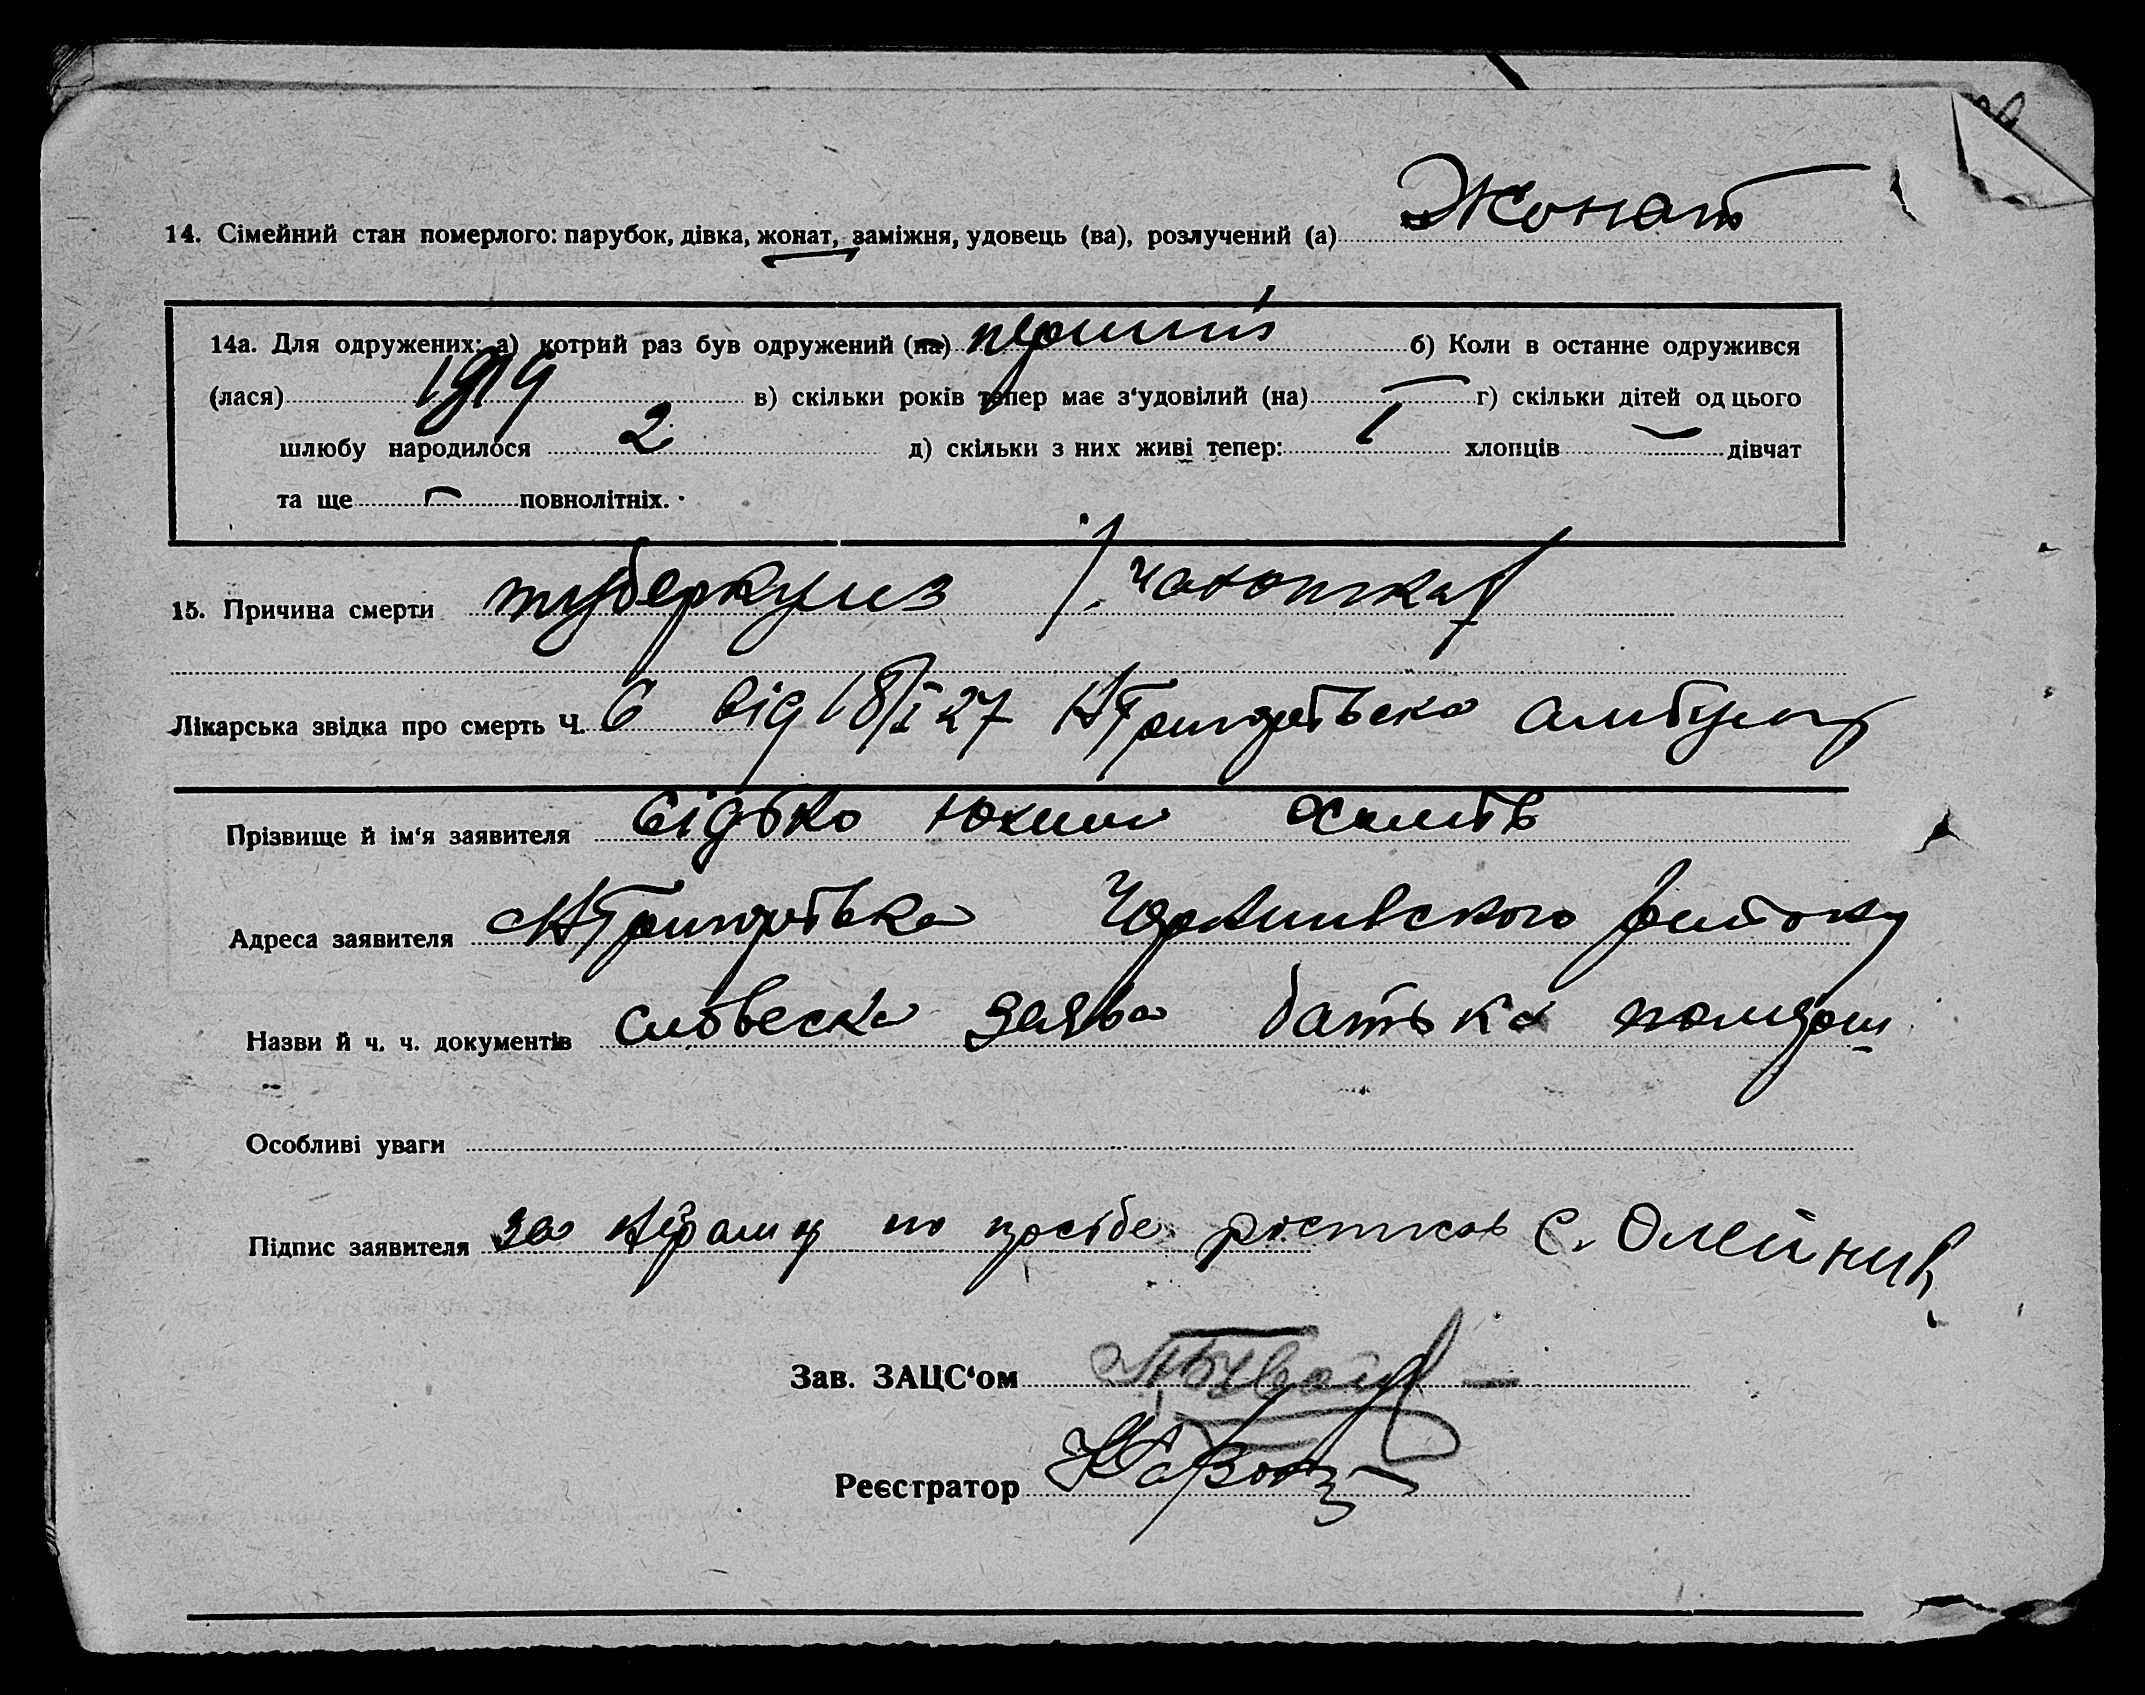 14. Сімейний стан померлого: парубок, дівка, жонат, заміжня, удовець (ва), розлучений (а) Жонат
14а. Для одружених: а) котрий раз був одружений (на) перший б) Коли в останне одружився
(лася) 1919 в) скільки років тепер має з‘удовілий (на) — г) скільки дітей од цього
шлюбу народилося 2 д) скільки з них живі тепер: 1 хлопців — дівчат
та ще — повнолітніх.
15. Причина смерти туберкульоз / чахотка /
Лікарська звідка про смерть Ч. 6 від 18/I 27 Григорівська амбул
Прізвище й ім‘я заявителя
Адреса заявителя Григорівка району
Назви й ч. ч. документів словесна заява батька померш
Особливі уваги
Підпис заявителя за по просібе С. Олейник
Зав. ЗАЦС‘ом
Реєстратор